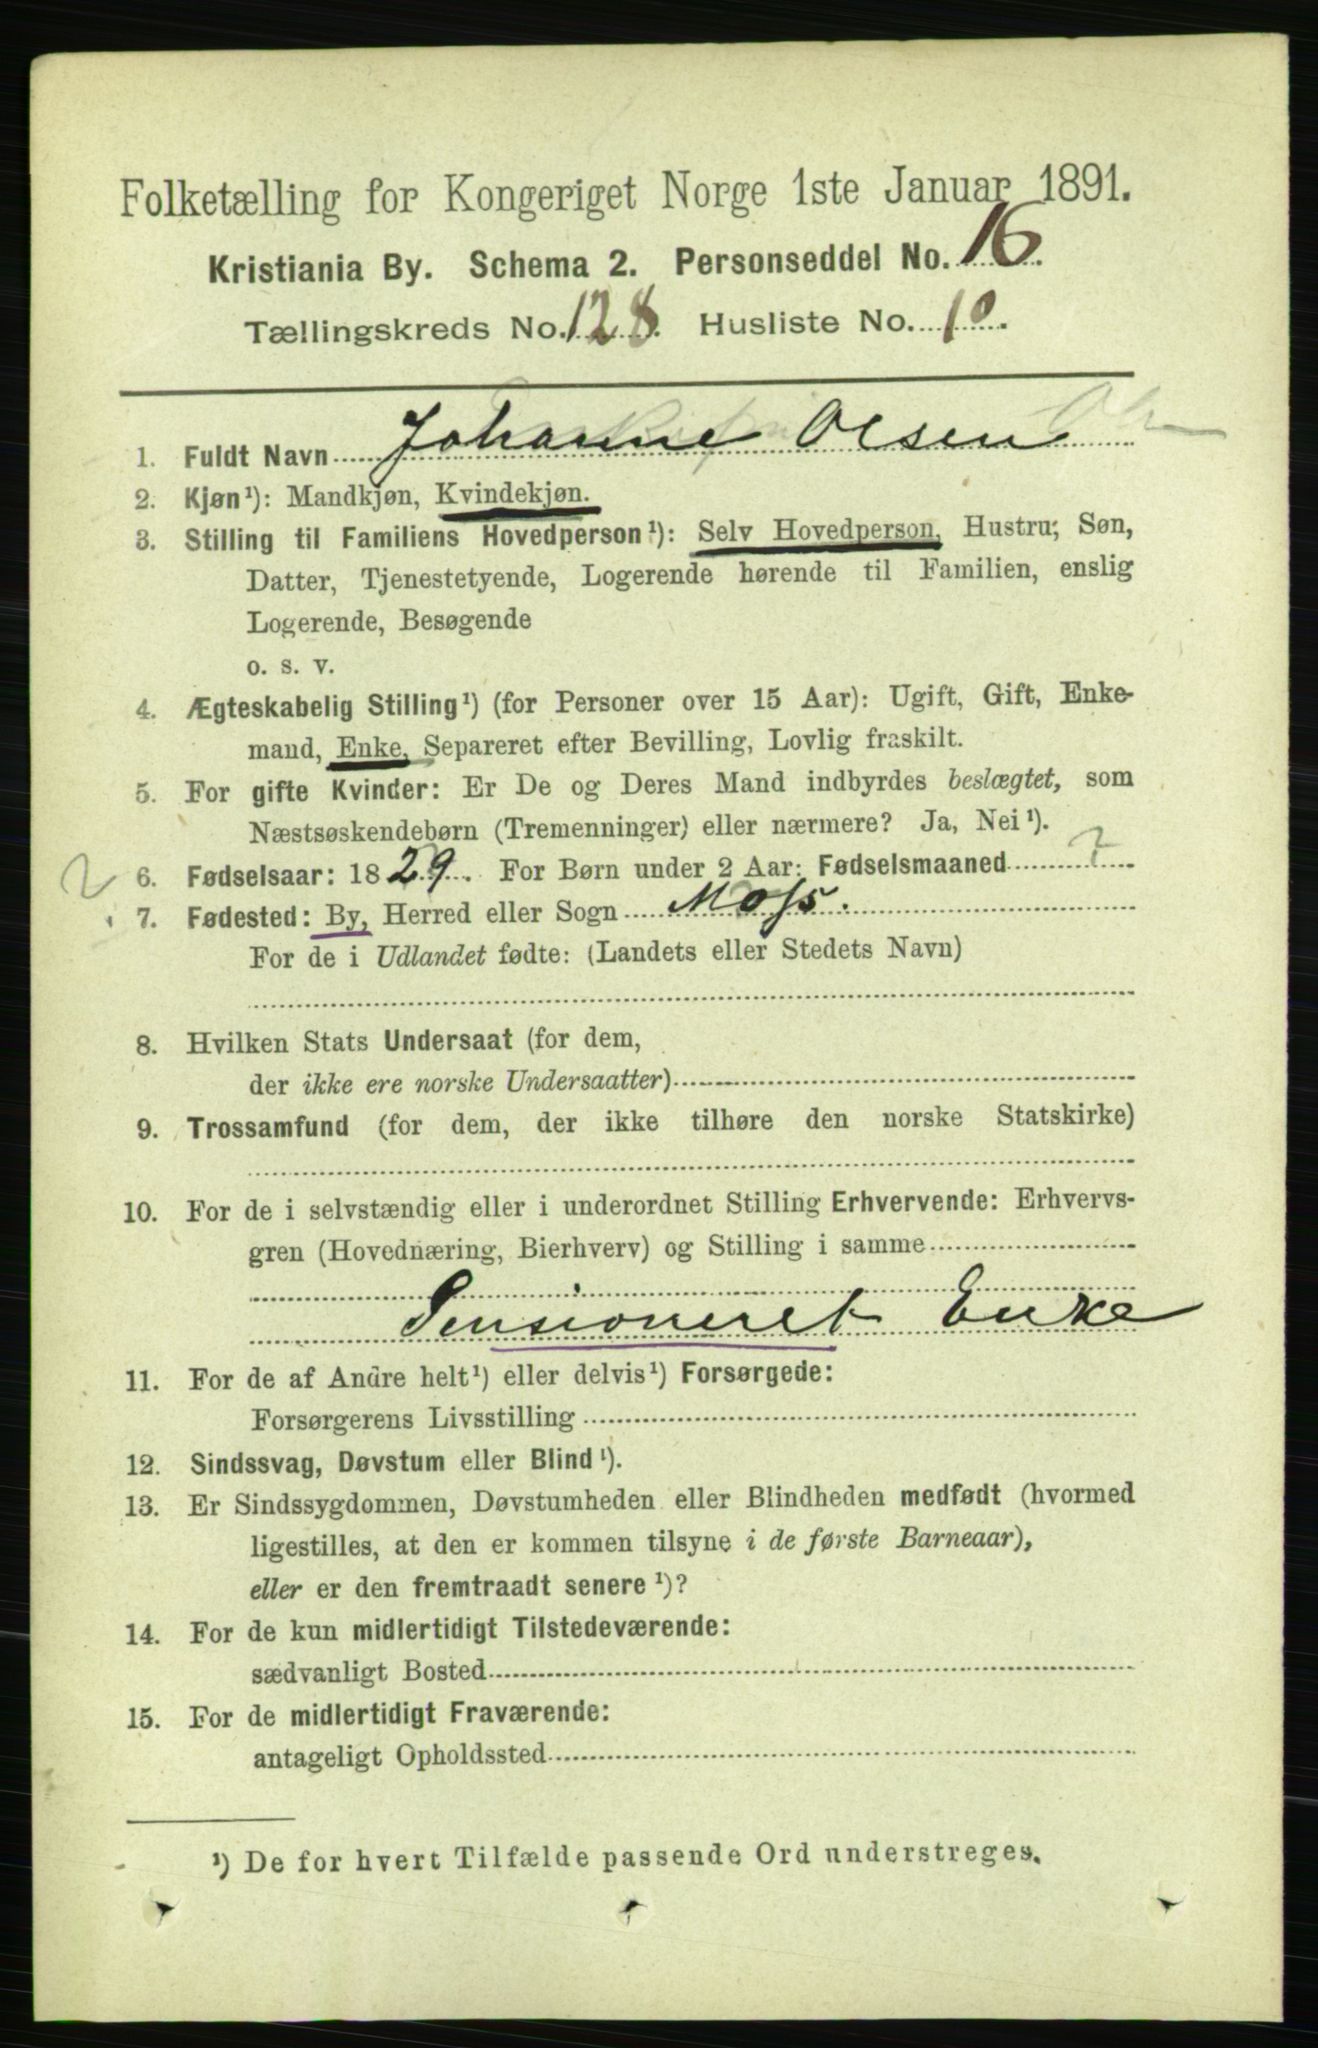 Folketælling for Kongeriget Norge 1ste Januar 1891.
Kristiania By. Schema 2. Personseddel No. 16.
Tællingskreds No. 128. Husliste No. 10.
1. Fuldt Navn Johanne Olsen
2. Kjøn¹): Mandkjøn, Kvindekjøn.
3. Stilling til Familiens Hovedperson¹): Selv Hovedperson, Hustru, Søn,
Datter, Tjenestetyende, Logerende hørende til Familien, enslig
Logerende, Besøgende
o. s. v.
4. Ægteskabelig Stilling¹) (for Personer over 15 Aar): Ugift, Gift, Enke-
mand, Enke, Separeret efter Bevilling, Lovlig fraskilt.
5. For gifte Kvinder: Er De og Deres Mand indbyrdes beslægtet, som
Næstsøskendebørn (Tremenninger) eller nærmere? Ja, Nei¹).
2 6. Fødselsaar: 1829. For Børn under 2 Aar: Fødselsmaaned ?
7. Fødested: By, Herred eller Sogn Moss.
For de i Udlandet fødte: (Landets eller Stedets Navn)
8. Hvilken Stats Undersaat (for dem,
der ikke ere norske Undersaatter)
9. Trossamfund (for dem, der ikke tilhøre den norske Statskirke)
10. For de i selvstændig eller i underordnet Stilling Erhvervende: Erhvervs-
gren (Hovednæring, Bierhverv) og Stilling i samme
Pensioneret Enke
11. For de af Andre helt¹) eller delvis¹) Forsørgede:
Forsørgerens Livsstilling
12. Sindssvag, Døvstum eller Blind¹).
13. Er Sindssygdommen, Døvstumheden eller Blindheden medfødt (hvormed
ligestilles, at den er kommen tilsyne i de første Barneaar),
eller er den fremtraadt senere¹)?
14. For de kun midlertidigt Tilstedeværende:
sædvanligt Bosted
15. For de midlertidigt Fraværende:
antageligt Opholdssted
¹) De for hvert Tilfælde passende Ord understreges.